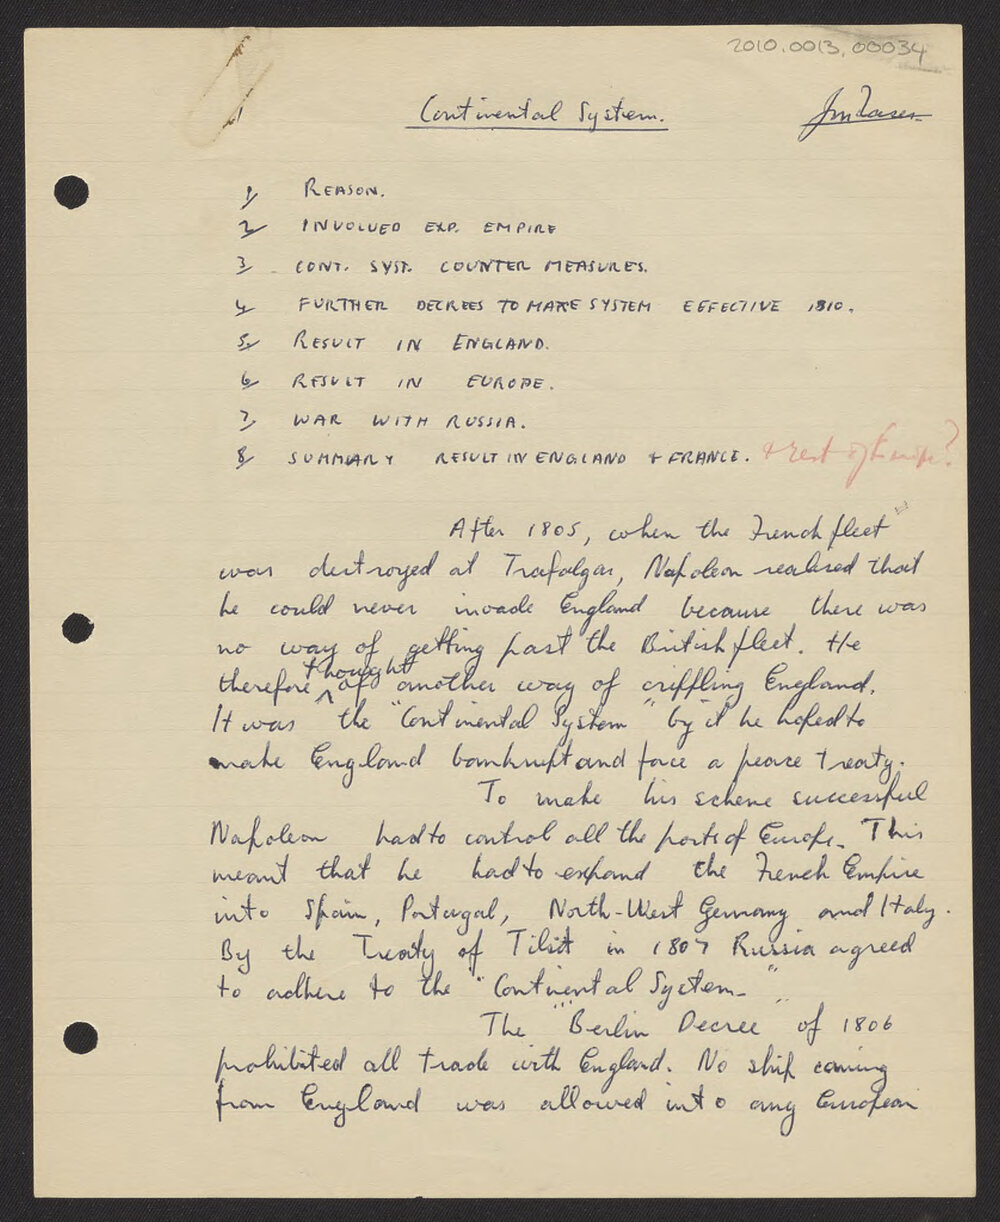 2010.0013.00034
Continental System.
1/ REASON.
2/ INVOLVED EXP. EMPIRE
3/ CONT. SYST. COUNTER MEASURES.
4/ FURTHER DECREES TO MAKE SYSTEM EFFECTIVE 1810.
5/ RESULT IN ENGLAND.
6/ RESULT IN EUROPE.
7/ WAR WITH RUSSIA.
8/ SUMMARY RESULT IN ENGLAND + FRANCE. + rest of Europe?
After 1805, when the French fleet
was destroyed at Trafalgar, Napoleon realised that
he could never invade England because there was
no way of getting past the British fleet. He
therefore thought of another way of crippling England.
It was the "Continental System" by it he hoped to
make England bankrupt and force a peace treaty.
To make his scheme successful
Napoleon had to control all the ports of Europe. This
meant that he had to expand the French Empire
into Spain, Portugal, North-West Germany and Italy.
By the Treaty of Tilsit in 1807 Russia agreed
to adhere to the "Continental System."
The "Berlin Decree" of 1806
prohibited all trade with England. No ship coming
from England was allowed into any European